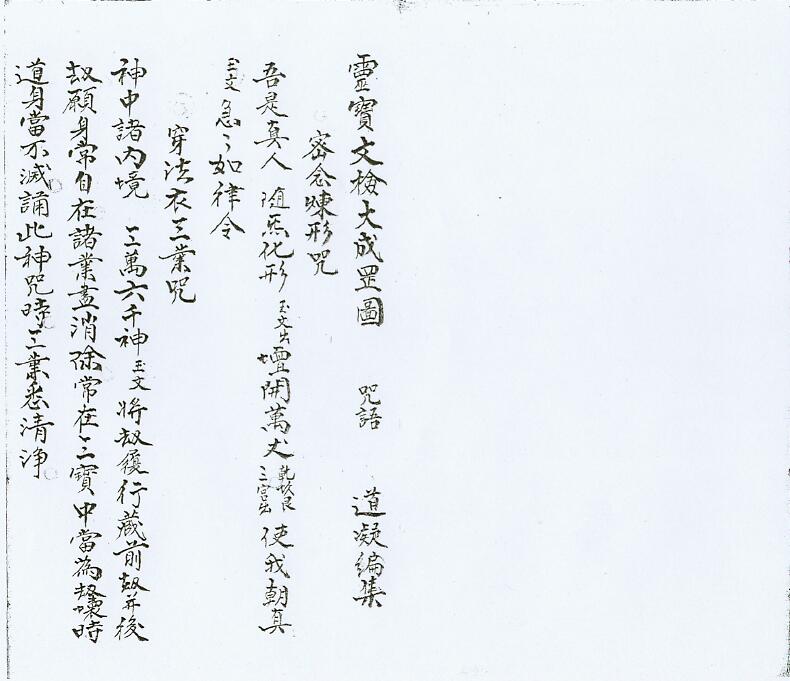 靈寶文檢大成罡圖 咒語 道凝編集
密念煉形咒
吾是真人 隨炁化形 玉文出 壇開萬丈 乾坎艮三宮出 使我朝真
玉文 急〻如律令
穿法衣三業咒
神中諸內境 三萬六千神 玉文 將劫履行藏前劫并後
劫願身常自在諸業盡消除常在三寶中當為劫壞時
道身當不滅誦此神咒時三業悉清淨